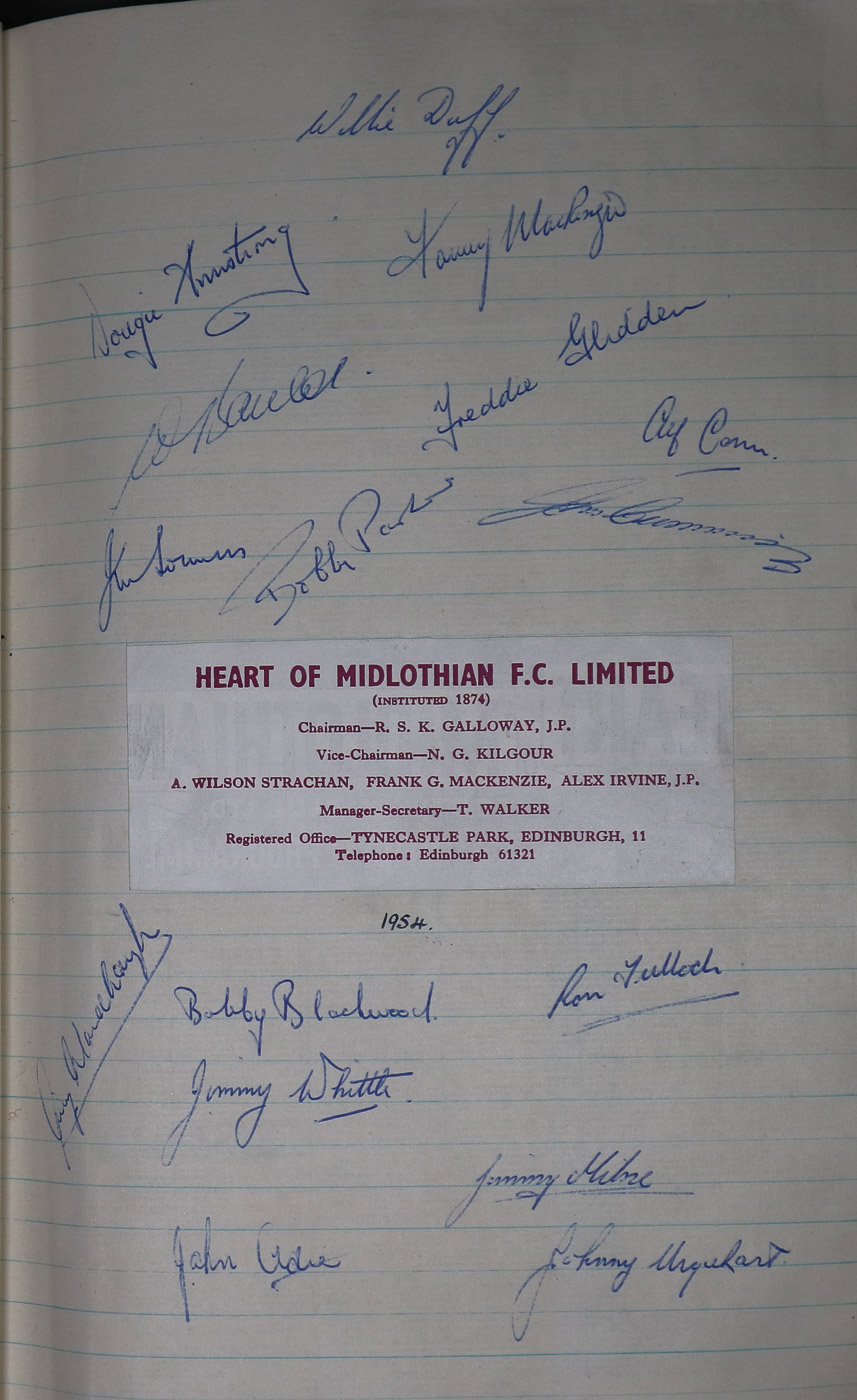 Willie Duff.
Dougie Armstrong
Tammy Mackenzie
W Bauld.
Freddie Glidden
Alf Conn.
Jim Souness
Bobby Parker
John Cumming
HEART OF MIDLOTHIAN F.C. LIMITED
(INSTITUTED 1874)
Chairman—R. S. K. GALLOWAY, J.P.
Vice-Chairman—N. G. KILGOUR
A. WILSON STRACHAN, FRANK G. MACKENZIE, ALEX IRVINE, J.P.
Manager-Secretary—T. WALKER
Registered Office—TYNECASTLE PARK, EDINBURGH, 11
Telephone: Edinburgh 61321
1954.
Bobby Blackwood.
Ron Tulloch
Jimmy Whittle.
Jimmy Milne
John Adie
Johnny Urquhart.